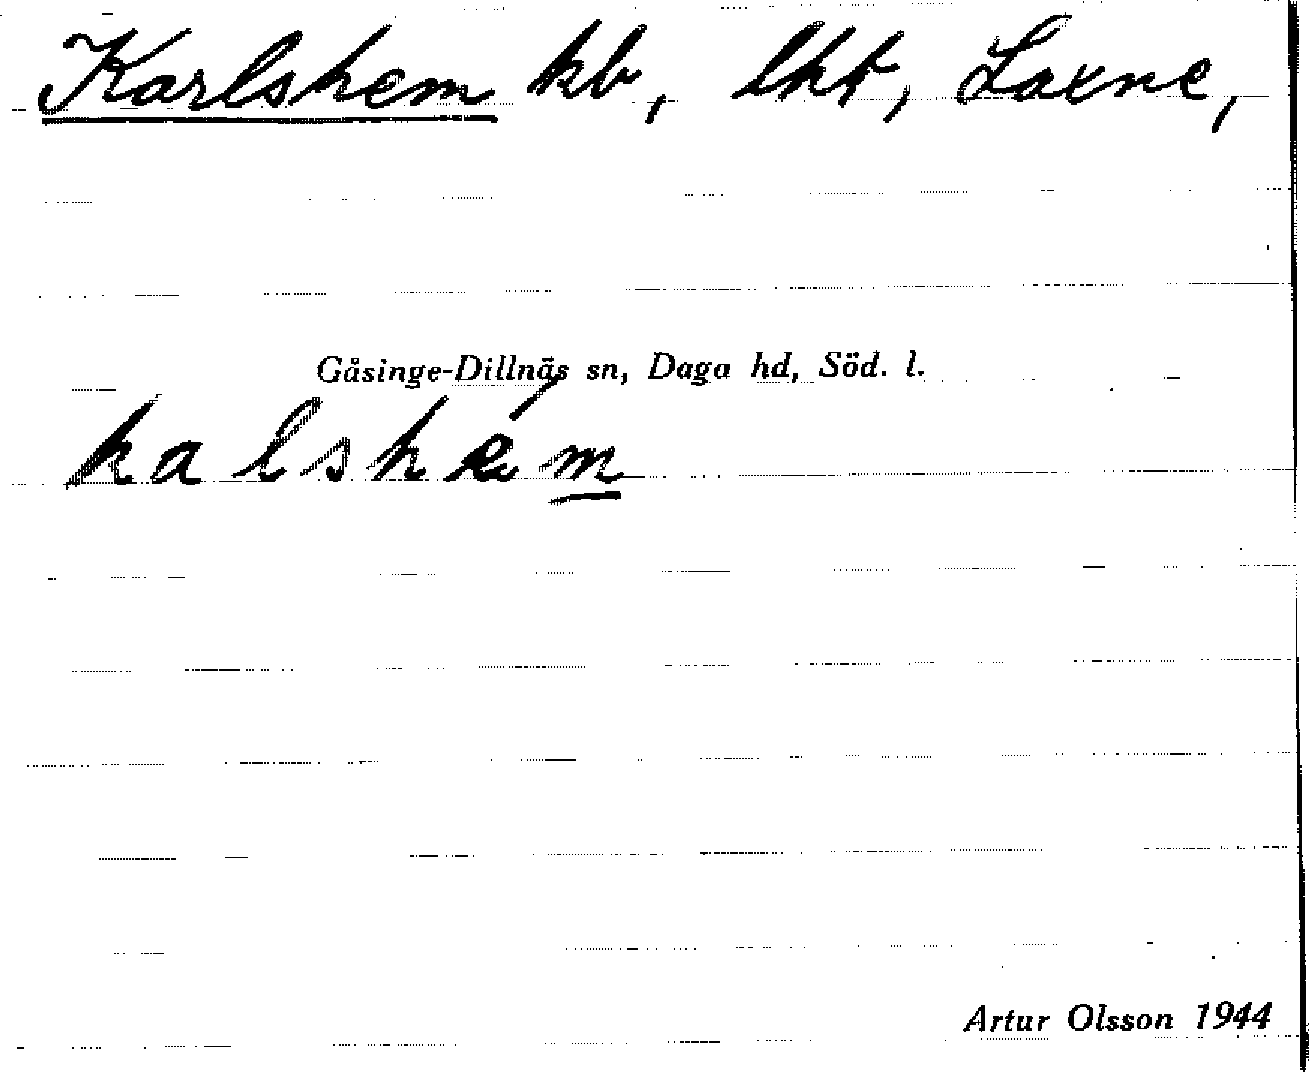 Karlshem kb, lht, Laxne,
Gåsinge-Dillnäs sn, Daga hd, Söd. l.
kalshem
Artur Olsson 1944